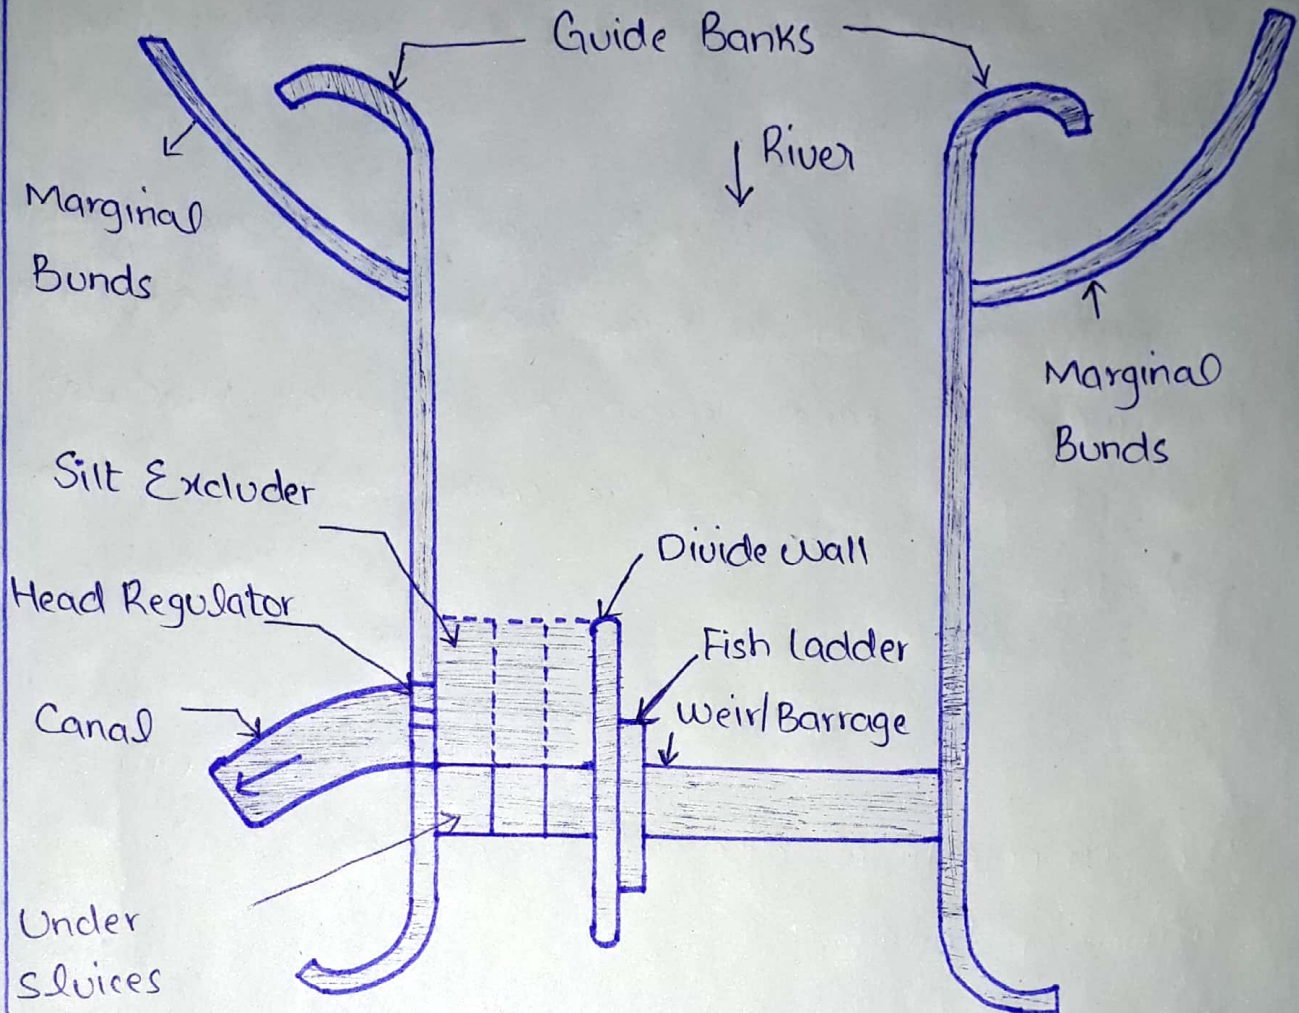 Guide Banks
River
Marginal
Bunds
Marginal
Bunds
Silt Excluder
Divide wall
Head Regulator
Fish ladder
Canal
Weir/Barrage
Under
Sluices